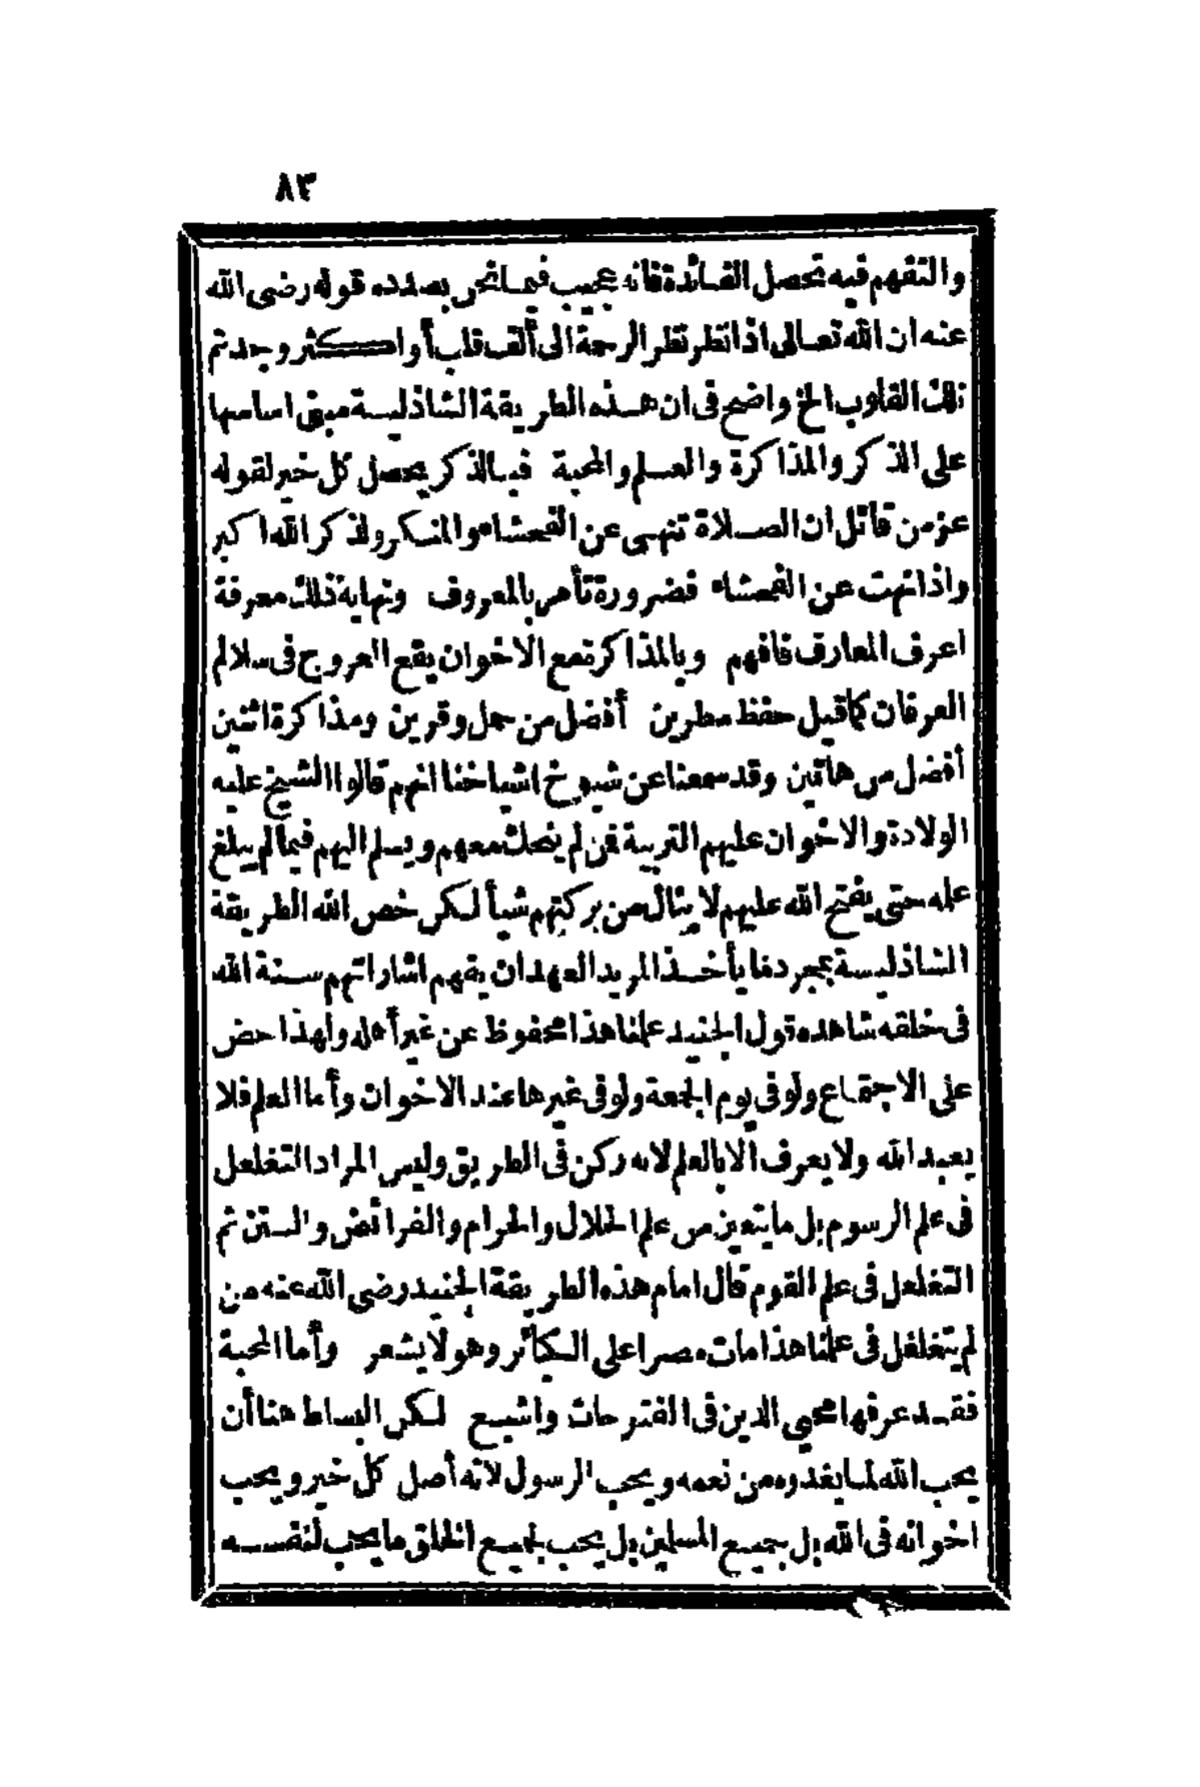 ٨٣
والتفهم فيه تحصل الفائدة فانه عجيب فيما نحن بصدده قوله رضى الله
عنه ان الله تعالى اذا نظر نظر الرحمة الى ألف قلب أو اكثر وجد تم
تلك القلوب الخ واضح فى ان هذه الطريقة الشاذلية مبنى اساسها
على الذكر والمذاكرة والعلم والمحبة فبالذكر يحصل كل خير لقوله
عز من قائل ان الصلاة تنهى عن الفحشاء والمنكر ولذكر الله اكبر
واذا نهت عن الفحشاء فضرورة تأمر بالمعروف ونهاية ذلك معرفة
اعرف المعارف فافهم وبالمذاكرة مع الاخوان يقع العروج فى سلالم
العرفان كما قيل حفظ سطرين أفضل من حمل وقرين ومذاكرة اثنين
أفضل من هاتين وقد سمعنا عن شيوخ اشياخنا انهم قالوا الشيخ عليه
الولادة والاخوان عليهم التربية فمن لم يتحكك معهم ويسلم اليهم فيما لم يبلغ
علمه حتى يفتح الله عليهم لا ينال من بركتهم شيأ لكن خص الله الطريقة
الشاذلية بمجرد ما يأخذ المريد العهد ان يفهم اشاراتهم سنة الله
فى خلقه شاهده قول الجنيد علمنا هذا محفوظ عن غير أهله ولهذا حض
على الاجتماع ولو فى يوم الجمعة ولو فى غيرها عند الاخوان وأما العلم فلا
يعبد الله ولا يعرف الا بالعلم لانه ركن فى الطريق وليس المراد التغلغل
فى علم الرسوم بل ما يتعين من علم الحلال والحرام والفرائض والسنن ثم
التغلغل فى علم القوم قال امام هذه الطريقة الجنيد رضى الله عنه من
لم يتغلغل فى علمنا هذا مات مصرا على الكبائر وهو لا يشعر وأما المحبة
فقد عرفها محيي الدين فى الفتوحات واشبع لكن البساط هنا أن
يحب الله لما يغذوه من نعمه ويحب الرسول لانه أصل كل خير ويحب
اخوانه فى الله بل جميع المسلمين بل يحب لجميع الخلق ما يحب لنفسه